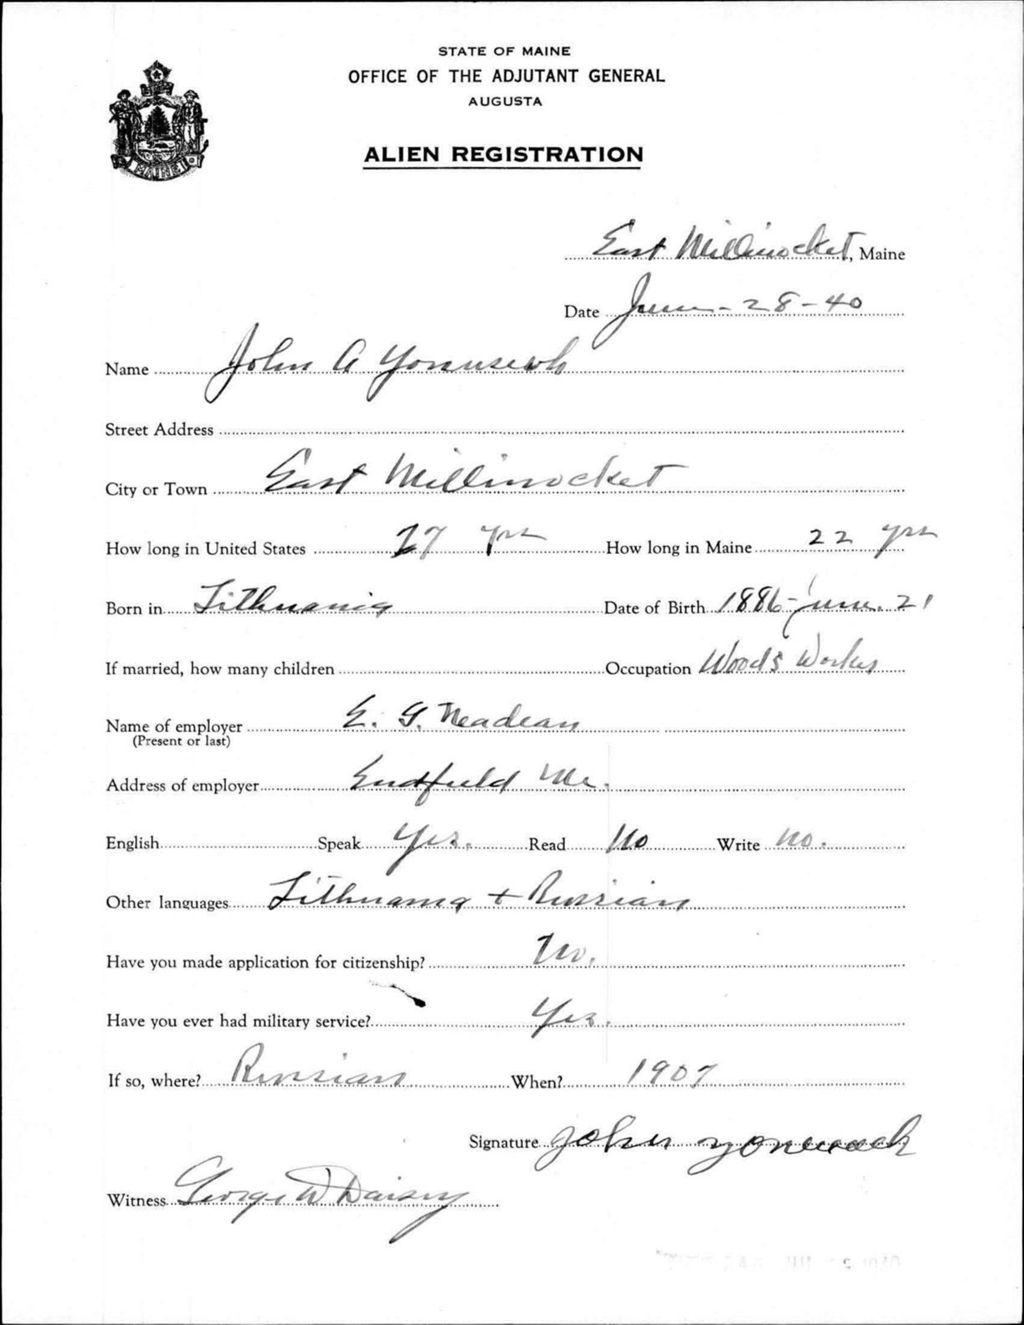 STATE OF MAINE
OFFICE OF THE ADJUTANT GENERAL
AUGUSTA
ALIEN REGISTRATION
MAINE
East Millinocket, Maine
Date June - 28 - 40
Name John A
Street Address
City or Town East Millinocket
How long in United States 27 yrs How long in Maine 22 yrs
Born in Lithuania Date of Birth 1886 - June. 21
If married, how many children Occupation Woods Worker
Name of employer E. G. Neadeau
(Present or last)
Address of employer Endfield Me.
English Speak Yes. Read No Write No.
Other languages Lithuania + Russian
Have you made application for citizenship? No.
Have you ever had military service? Yes.
If so, where? Russian When? 1907
Signature John
Witness George W